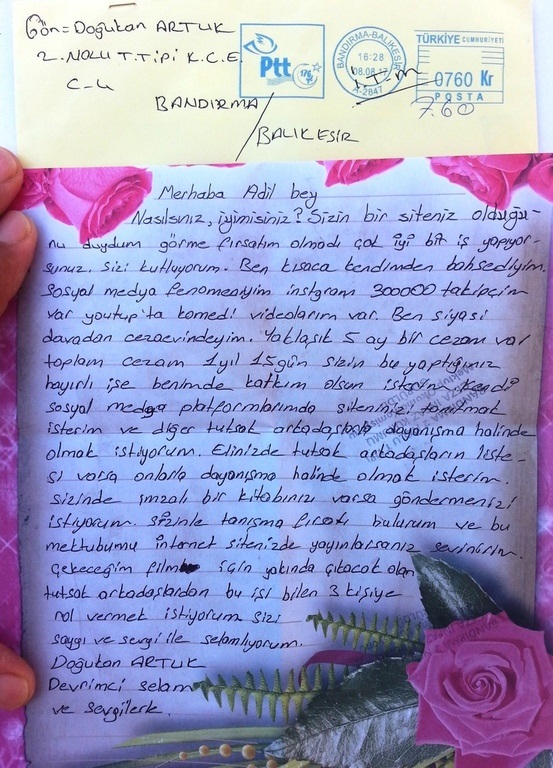 Gön= Doğukan ARTUK
2. NOLU T.TİPİ K.C.E.
C-4
BANDIRMA
/ BALIKESİR
Ptt
BANDIRMA-BALIKESİR
16:28
08.08.17
A-2847
TÜRKİYE CUMHURİYETİ
0760 Kr
POSTA
7.60
Merhaba Adil bey
Nasılsınız, iyimisiniz? Sizin bir siteniz olduğu-
nu duydum görme fırsatım olmadı çok iyi bir iş yapıyor-
sunuz. sizi kutluyorum. Ben kısaca kendimden bahsediyim.
Sosyal medya fenomeniyim instgram 300000 takipçim
var youtup'ta komedi videolarım var. Ben siyasi
davadan cezaevindeyim. Yaklaşık 5 ay bir cezam var
toplam cezam 1 yıl 15 gün sizin bu yaptığınız
hayırlı işe benimde katkım olsun isterim kendi
sosyal medya platformlarımda sitenizi tanıtmak
isterim ve diğer tutsak arkadaşlarla dayanışma halinde
olmak istiyorum. Elinizde tutsak arkadaşların liste-
si varsa onlarla dayanışma halinde olmak isterim.
sizinde imzalı bir kitabınız varsa göndermenizi
istiyorum. sizinle tanışma fırsatı bulurum ve bu
mektubumu internet sitenizde yayınlarsanız sevinirim.
Çekeceğim film için yakında çıkacak olan
tutsak arkadaşlardan bu işi bilen 3 kişiye
rol vermek istiyorum sizi
saygı ve sevgi ile selamlıyorum.
Doğukan ARTUK
Devrimci selam
ve sevgilerle.